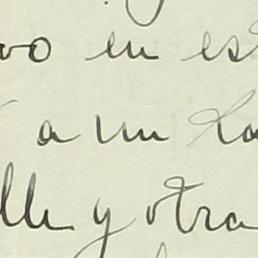 vo en es
a un la
lle y otra